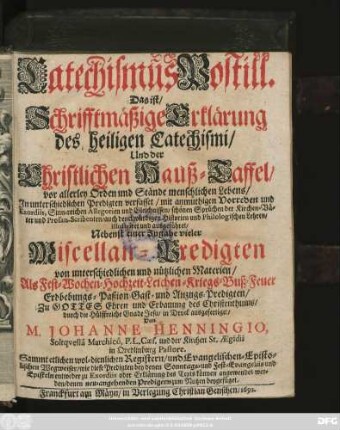 Catechismus Postill.
Das ist/
Schrifftmäßige Erklärung
des heiligen Catechismi/
Und der
Christlichen Hauß-Taffel/
vor allerley Orden und Stände menschlichen Lebens/
In unterschiedlichen Predigten verfasset / mit anmuthigen Vorreden und
Exordiis, Sinn-reichen Allegorien und Gleichnissen, schönen Sprüchen der Kirchen-Vä-
ter und Profan-Scribenten, auch denckwürdigen Historien und Philologischen Lehren,
illustriret und ausgeführet/
Nebenst einer Anzahl vieler
Miscellan-Predigten
von unterschiedlichen und nützlichen Materien/
Als Fest-Wochen-Hochzeit-Leichen-Kriegs-Buß-Feuer
Erdbebungs-Passion-Gast- und Anzugs-Predigten/
Zu GOTTES Ehren und Erbauung des Christenthums/
durch die Hülffreiche Gnade Jesu in Druck ausgefertiget/
Von
M. JOHANNE HENNINGIO,
Soltquellâ Marchicô, P. L. Cæs. und der Kirchen St. Ægidii
in Quedlinburg Pastore.
Sammt etlichen wol-dienlichen Registern/ und Evangelischen-Episto-
lischen Wegweiser/ wie diese Predigten bey denen Sonntags- und Fest-Evangelien und
Episteln entweder zu Exordiis oder Erklärung des Texts können angewendet wer-
den/ denen neu-angehenden Predigern zum Nutzen beygefüget.
Franckfurt am Mäyn/ in Verlegung Christian Genschen/